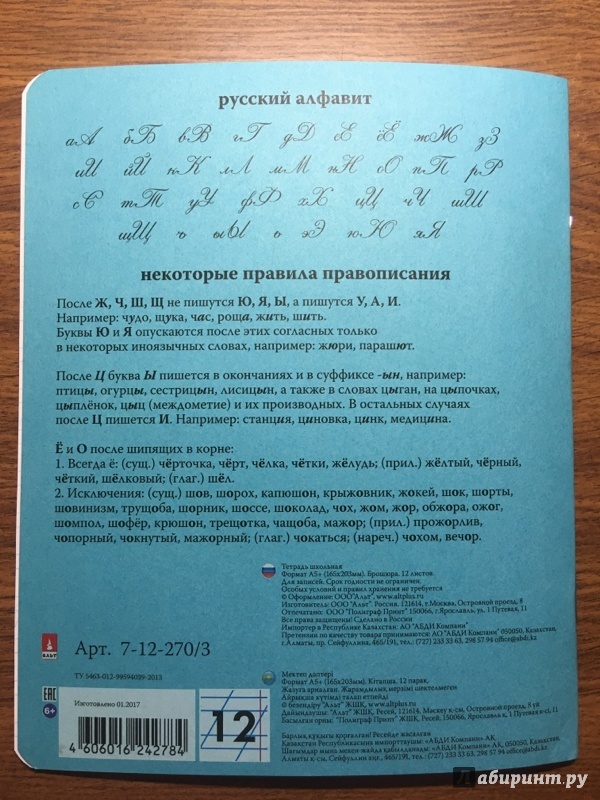 русский алфавит
аА бБ вВ гГ дД еЕ ёЁ жЖ зЗ
иИ йЙ кК лЛ мМ нН оО пП рР
сС тТ уУ фФ хХ цЦ чЧ шШ
щЩ ъ ыЫ ь эЭ юЮ яЯ
некоторые правила правописания
После Ж, Ч, Ш, Щ не пишутся Ю, Я, Ы, а пишутся У, А, И.
Например: чудо, щука, час, роща, жить, шить.
Буквы Ю и Я опускаются после этих согласных только
в некоторых иноязычных словах, например: жюри, парашют.
После Ц буква Ы пишется в окончаниях и в суффиксе -ын, например:
птицы, огурцы, сестрицын, лисицын, а также в словах цыган, на цыпочках,
цыплёнок, цыц (междометие) и их производных. В остальных случаях
после Ц пишется И. Например: станция, циновка, цинк, медицина.
Ё и О после шипящих в корне:
1. Всегда ё: (сущ.) чёрточка, чёрт, чёлка, чётки, жёлудь; (прил.) жёлтый, чёрный,
чёткий, шёлковый; (глаг.) шёл.
2. Исключения: (сущ.) шов, шорох, капюшон, крыжовник, жокей, шок, шорты,
шовинизм, трущоба, шорник, шоссе, шоколад, чох, жом, жор, обжора, ожог,
шомпол, шофёр, крюшон, трещотка, чащоба, мажор; (прил.) прожорлив,
чопорный, чокнутый, мажорный; (глаг.) чокаться; (нареч.) чохом, вечор.
Тетрадь школьная
Формат А5+ (165х203мм). Брошюра. 12 листов.
Для записей. Срок годности не ограничен.
Особых условий и правил хранения не требуется
© Оформление: ООО"Альт", www.altplus.ru
Изготовитель: ООО "Альт". Россия. 121614, г.Москва, Островной проезд, 8
Отпечатано: ООО "Полиграф Принт", 150066, г.Ярославль, ул. 1 Путевая, 11
Все права защищены! Сделано в России
Импортер в Республике Казахстан: АО "АБДИ Компани"
Претензии по качеству товара принимаются: АО "АБДИ Компани" 050050, Казахстан,
г.Алматы, пр. Сейфуллина, 465/191, тел.: (727) 233 53 63, 298 57 94 office@abdi.kz
АЛЬТ
Арт. 7-12-270/3
ТУ 5463-012-99594029-2013
Мектеп дәптері
Формат А5+ (165х203мм). Кітапша. 12 парақ.
Жазуға арналған. Жарамдылық мерзімі шектелмеген
Айрықша күтімді талап етпейді
© безендіру "Альт" ЖШҚ, www.altplus.ru
Дайындаушы: "Альт" ЖШҚ, Ресей, 121614,
Басылған орны: "Полиграф Принт" ЖШҚ, Ресей, 150066, Ярославль қ, 1 Путевая к-сі, 11
Барлық құқығы қорғалған! Ресейде жасалған
Қазақстан Республикасына импорттаушы: «АБДИ Компани» АҚ
050050, Қазақстан,
Алматы қ-сы, Сейфуллин көш., 465/191, тел.: (727) 233 53 63, 298 57 94 office@abdi.kz
EAC
6+
Изготовлено 01.2017
4 606016 242784
12
лабиринт.ру